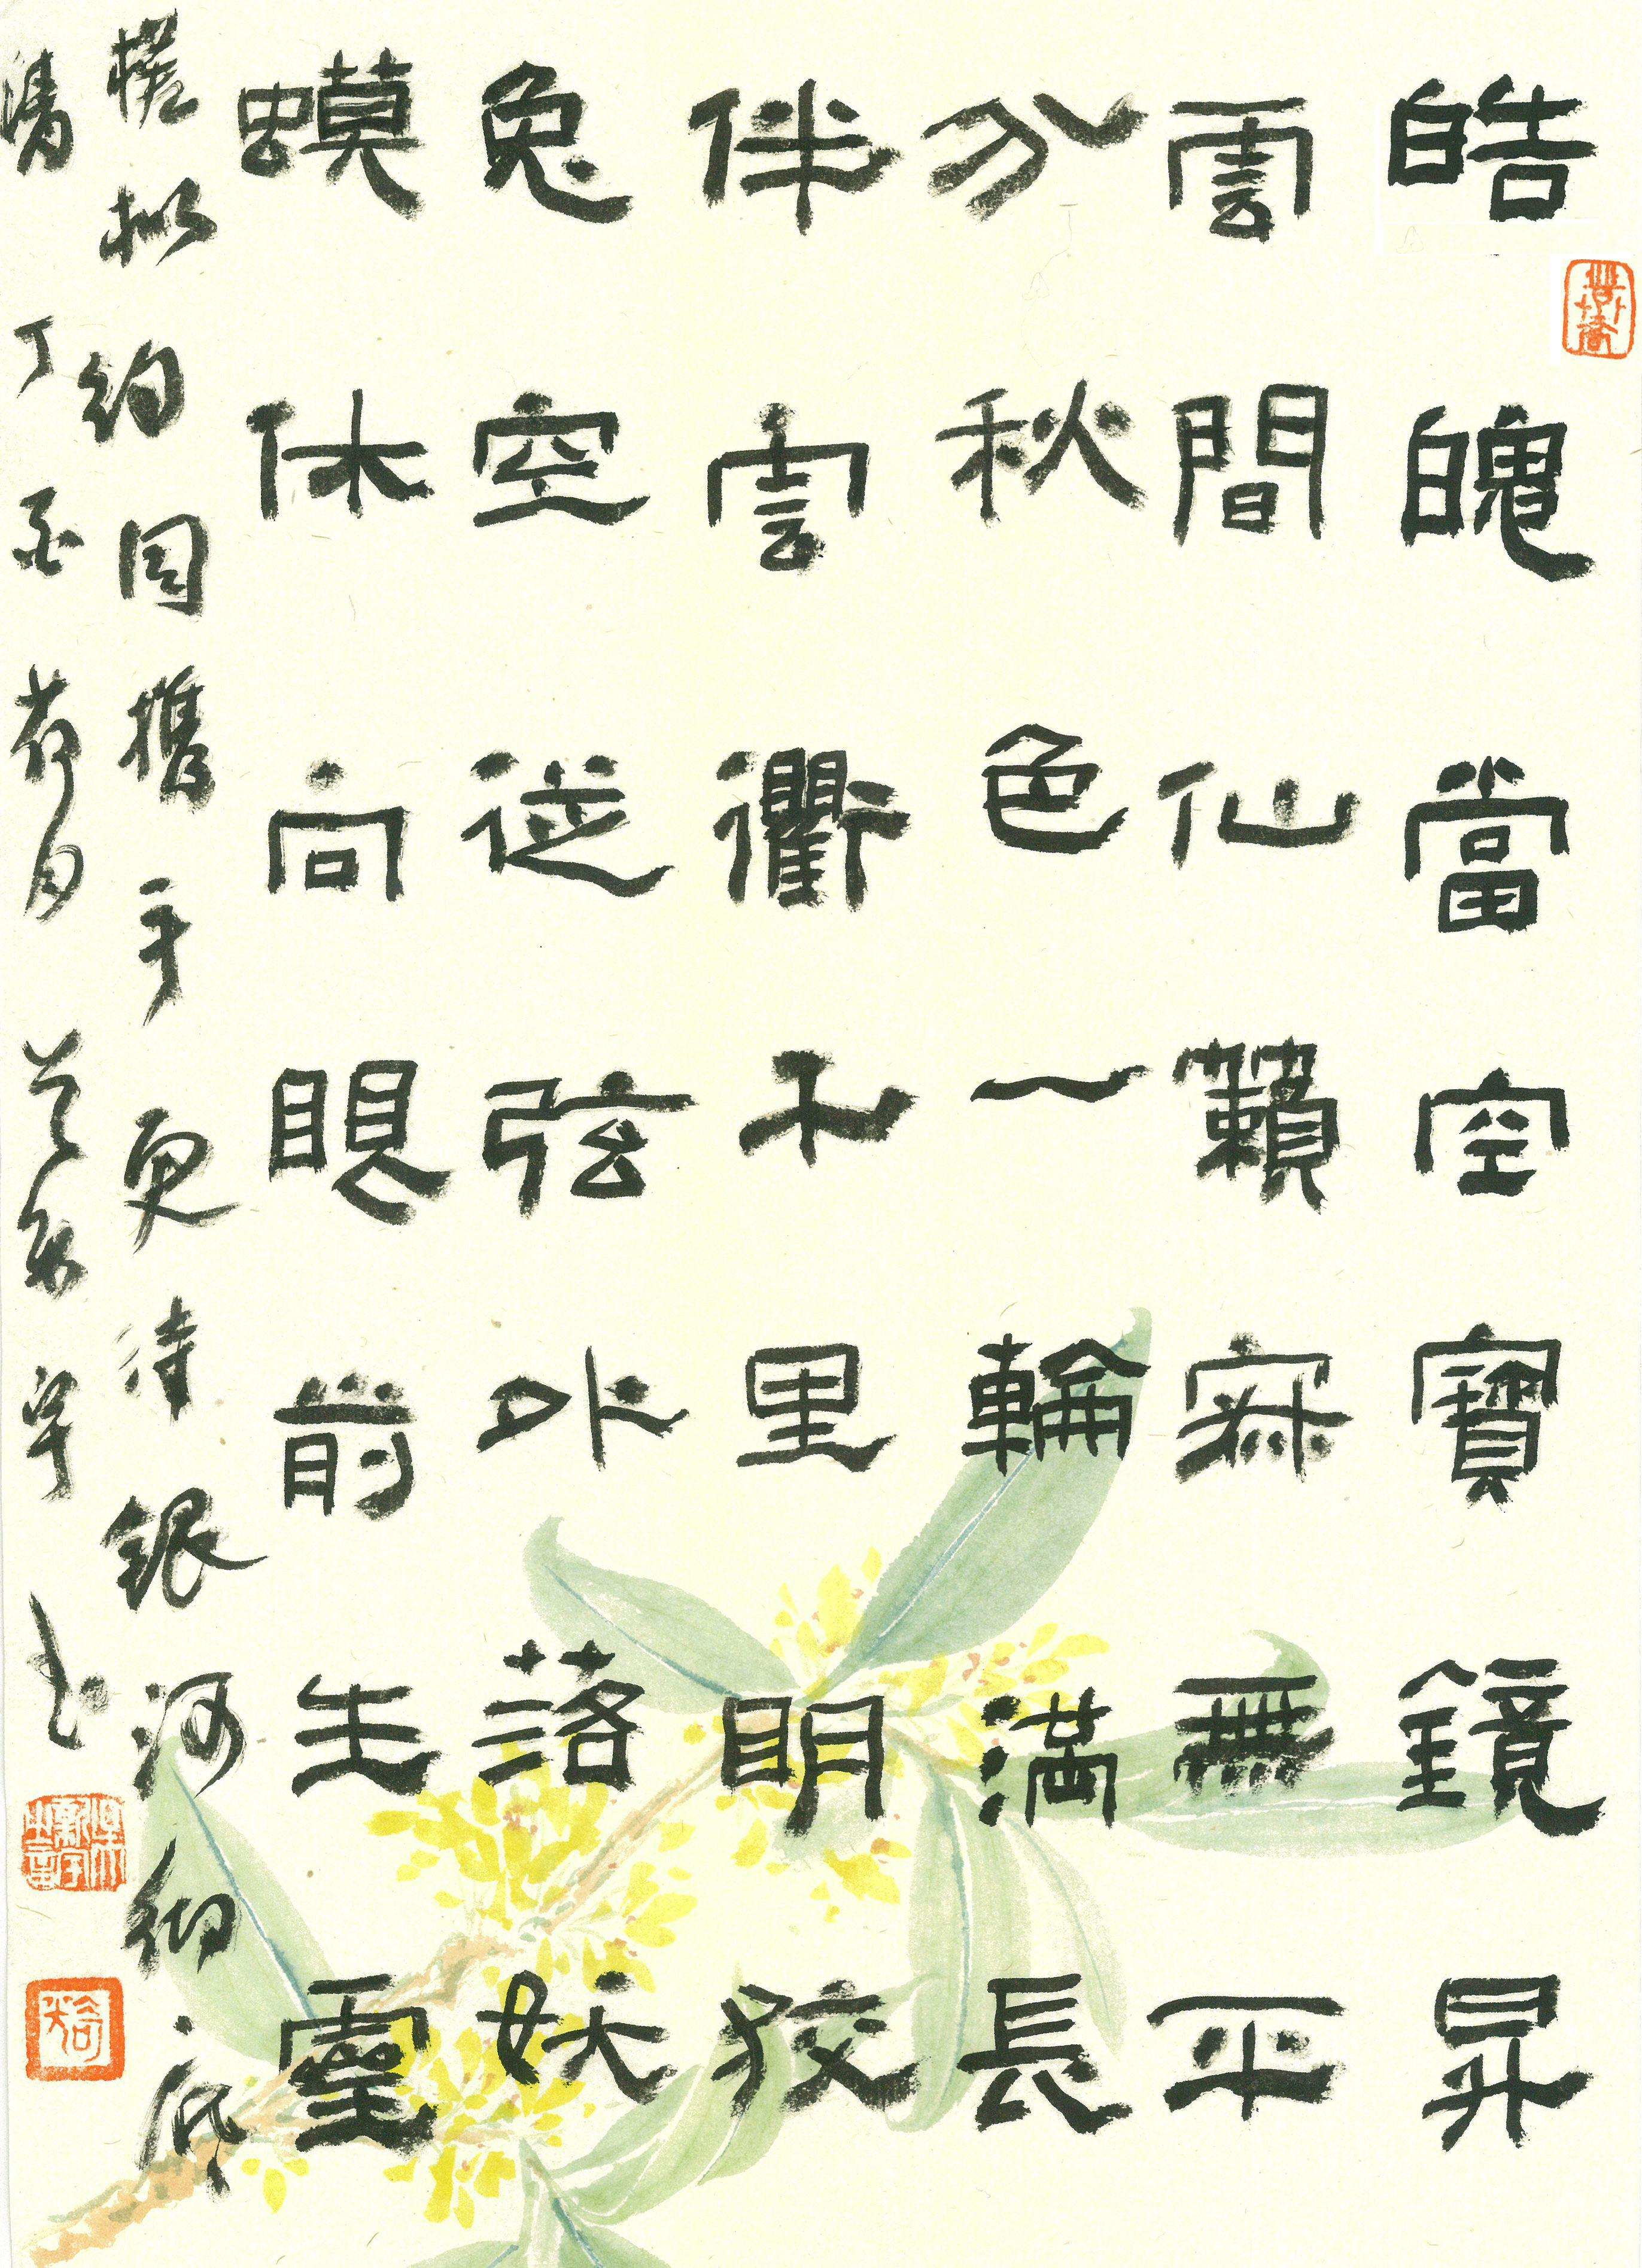 皓魄當空寶鏡昇
雲間仙籟寂無平
分秋色一輪滿長
伴雲衢千里明狡
兔空從弦外落妖
蟆休向眼前生靈
槎拟約同携手更待銀河彻底
清 丁酉荷月 梁新宇書